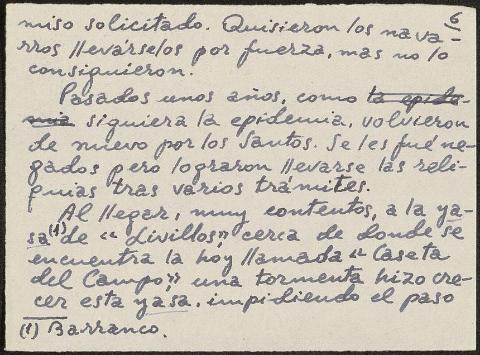 6
miso solicitado. Quisieron los nava-
rros llevárselos por fuerza, mas no lo
consiguieron.
Pasados unos años, como la epide-
mia siguiera la epidemia, volvieron
de nuevo por los Santos. Se les fué ne-
gados pero lograron llevarse las reli-
quias tras varios trámites.
Al llegar, muy contentos, a la ya-
sa (1) de "Livillos", cerca de donde se
encuentra la hoy llamada "Caseta
del Campo", una tormenta hizo cre-
cer esta yasa, impidiendo el paso
(1) Barranco.